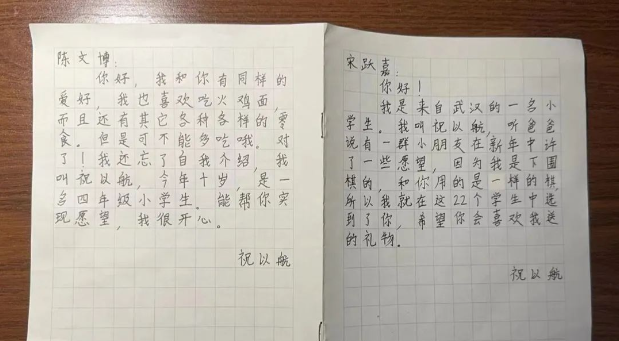 陈文博：
你好，我和你有同样的
爱好，我也喜欢吃火鸡面，
而且还有其它各种各样的零
食。但是可不能多吃哦。对
了！我还忘了自我介绍，我
叫祝以航，今年十岁，是一
名四年级小学生。能帮你实
现愿望，我很开心。
祝以航
宋跃嘉：
你好！
我是来自武汉的一名小
学生。我叫祝以航，听爸爸
说有一群小朋友在新年中许
了一些愿望，因为我是下围
棋的，和你用的是一样的棋，
所以我就在这22个学生中选
到了你，希望你会喜欢我送
的礼物。
祝以航